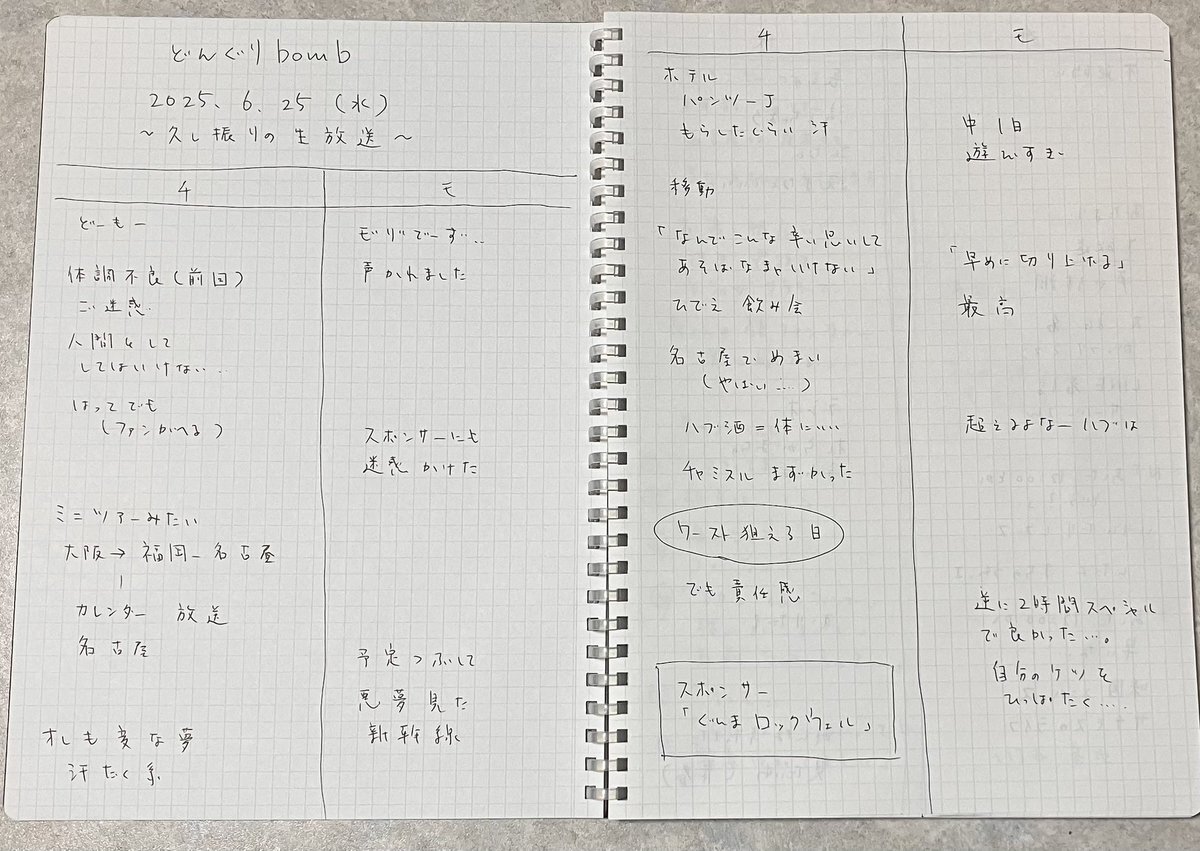 どんぐりbomb
2025. 6. 25 (水)
～久し振りの生放送～
4
モ
どーもー
体調不良(前回)
ご迷惑
人間として
してはいけない…
はってでも
(ファンがへる)
ミニツアーみたい
大阪→福岡-名古屋
カレンダー 放送
名古屋
オレも変な夢
汗だく系
モリでーす…
声かれました
スポンサーにも
迷惑かけた
予定つぶして
悪夢見た
新幹線
4
モ
ホテル
パンツ一丁
もらしたくらい汗
移動
「なんでこんな辛い思いして
あそばなきゃいけない」
ひでえ 飲み会
名古屋でめまい
(やばい…)
ハブ酒=体にいい
チャミスル まずかった
ワースト狙える日
でも責任感
スポンサー
「ぐんまロックウェル」
中1日
遊んすぎ
「早めに切り上げる」
最高
超えるよなーハブは
逆に2時間スペシャル
で良かった…。
自分のケツを
ひっぱたく…